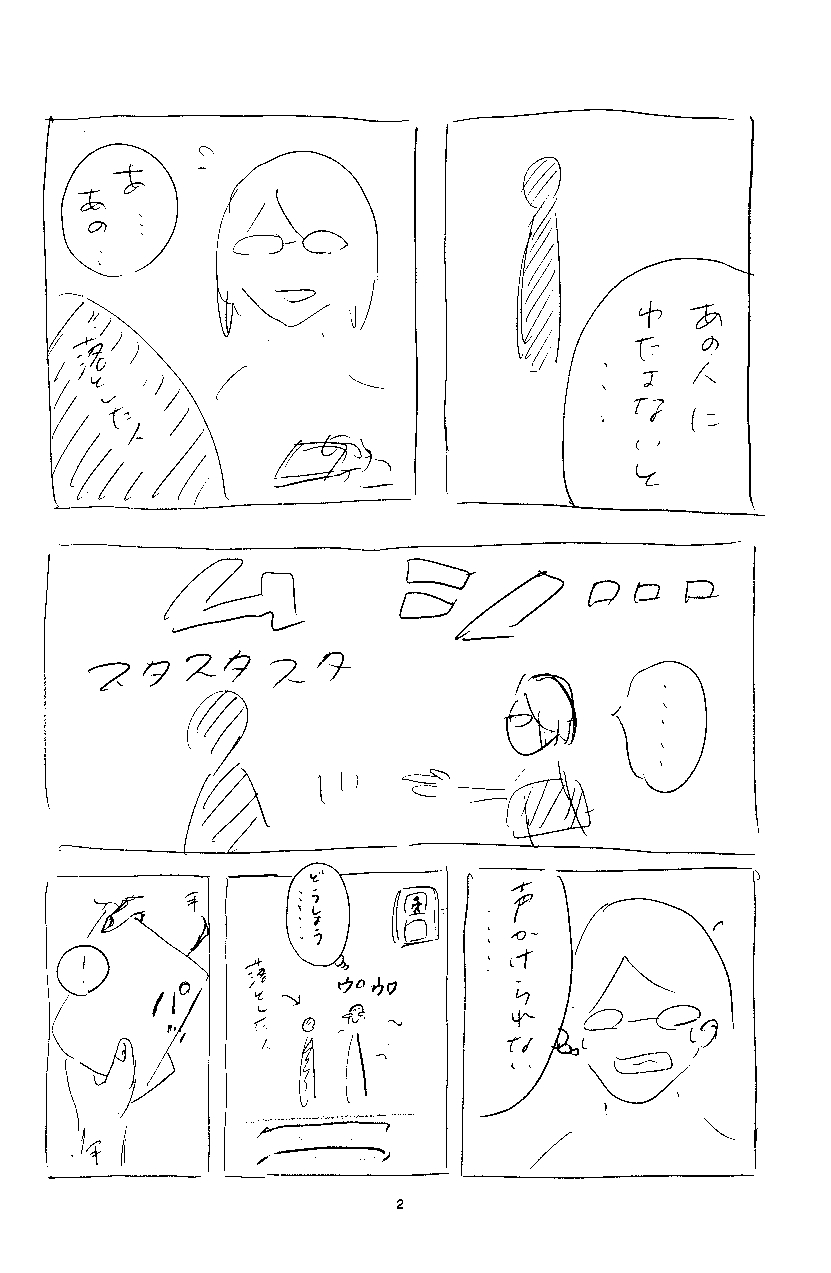 あの人に
わたさないと
・・・
あ…
あの…
落とした人
シーン
スタスタスタ
・・・・・
声かけられない
・・・・・
どうしよう
・・・・・
ウロウロ
落とした人
手
!
パッ
手
2